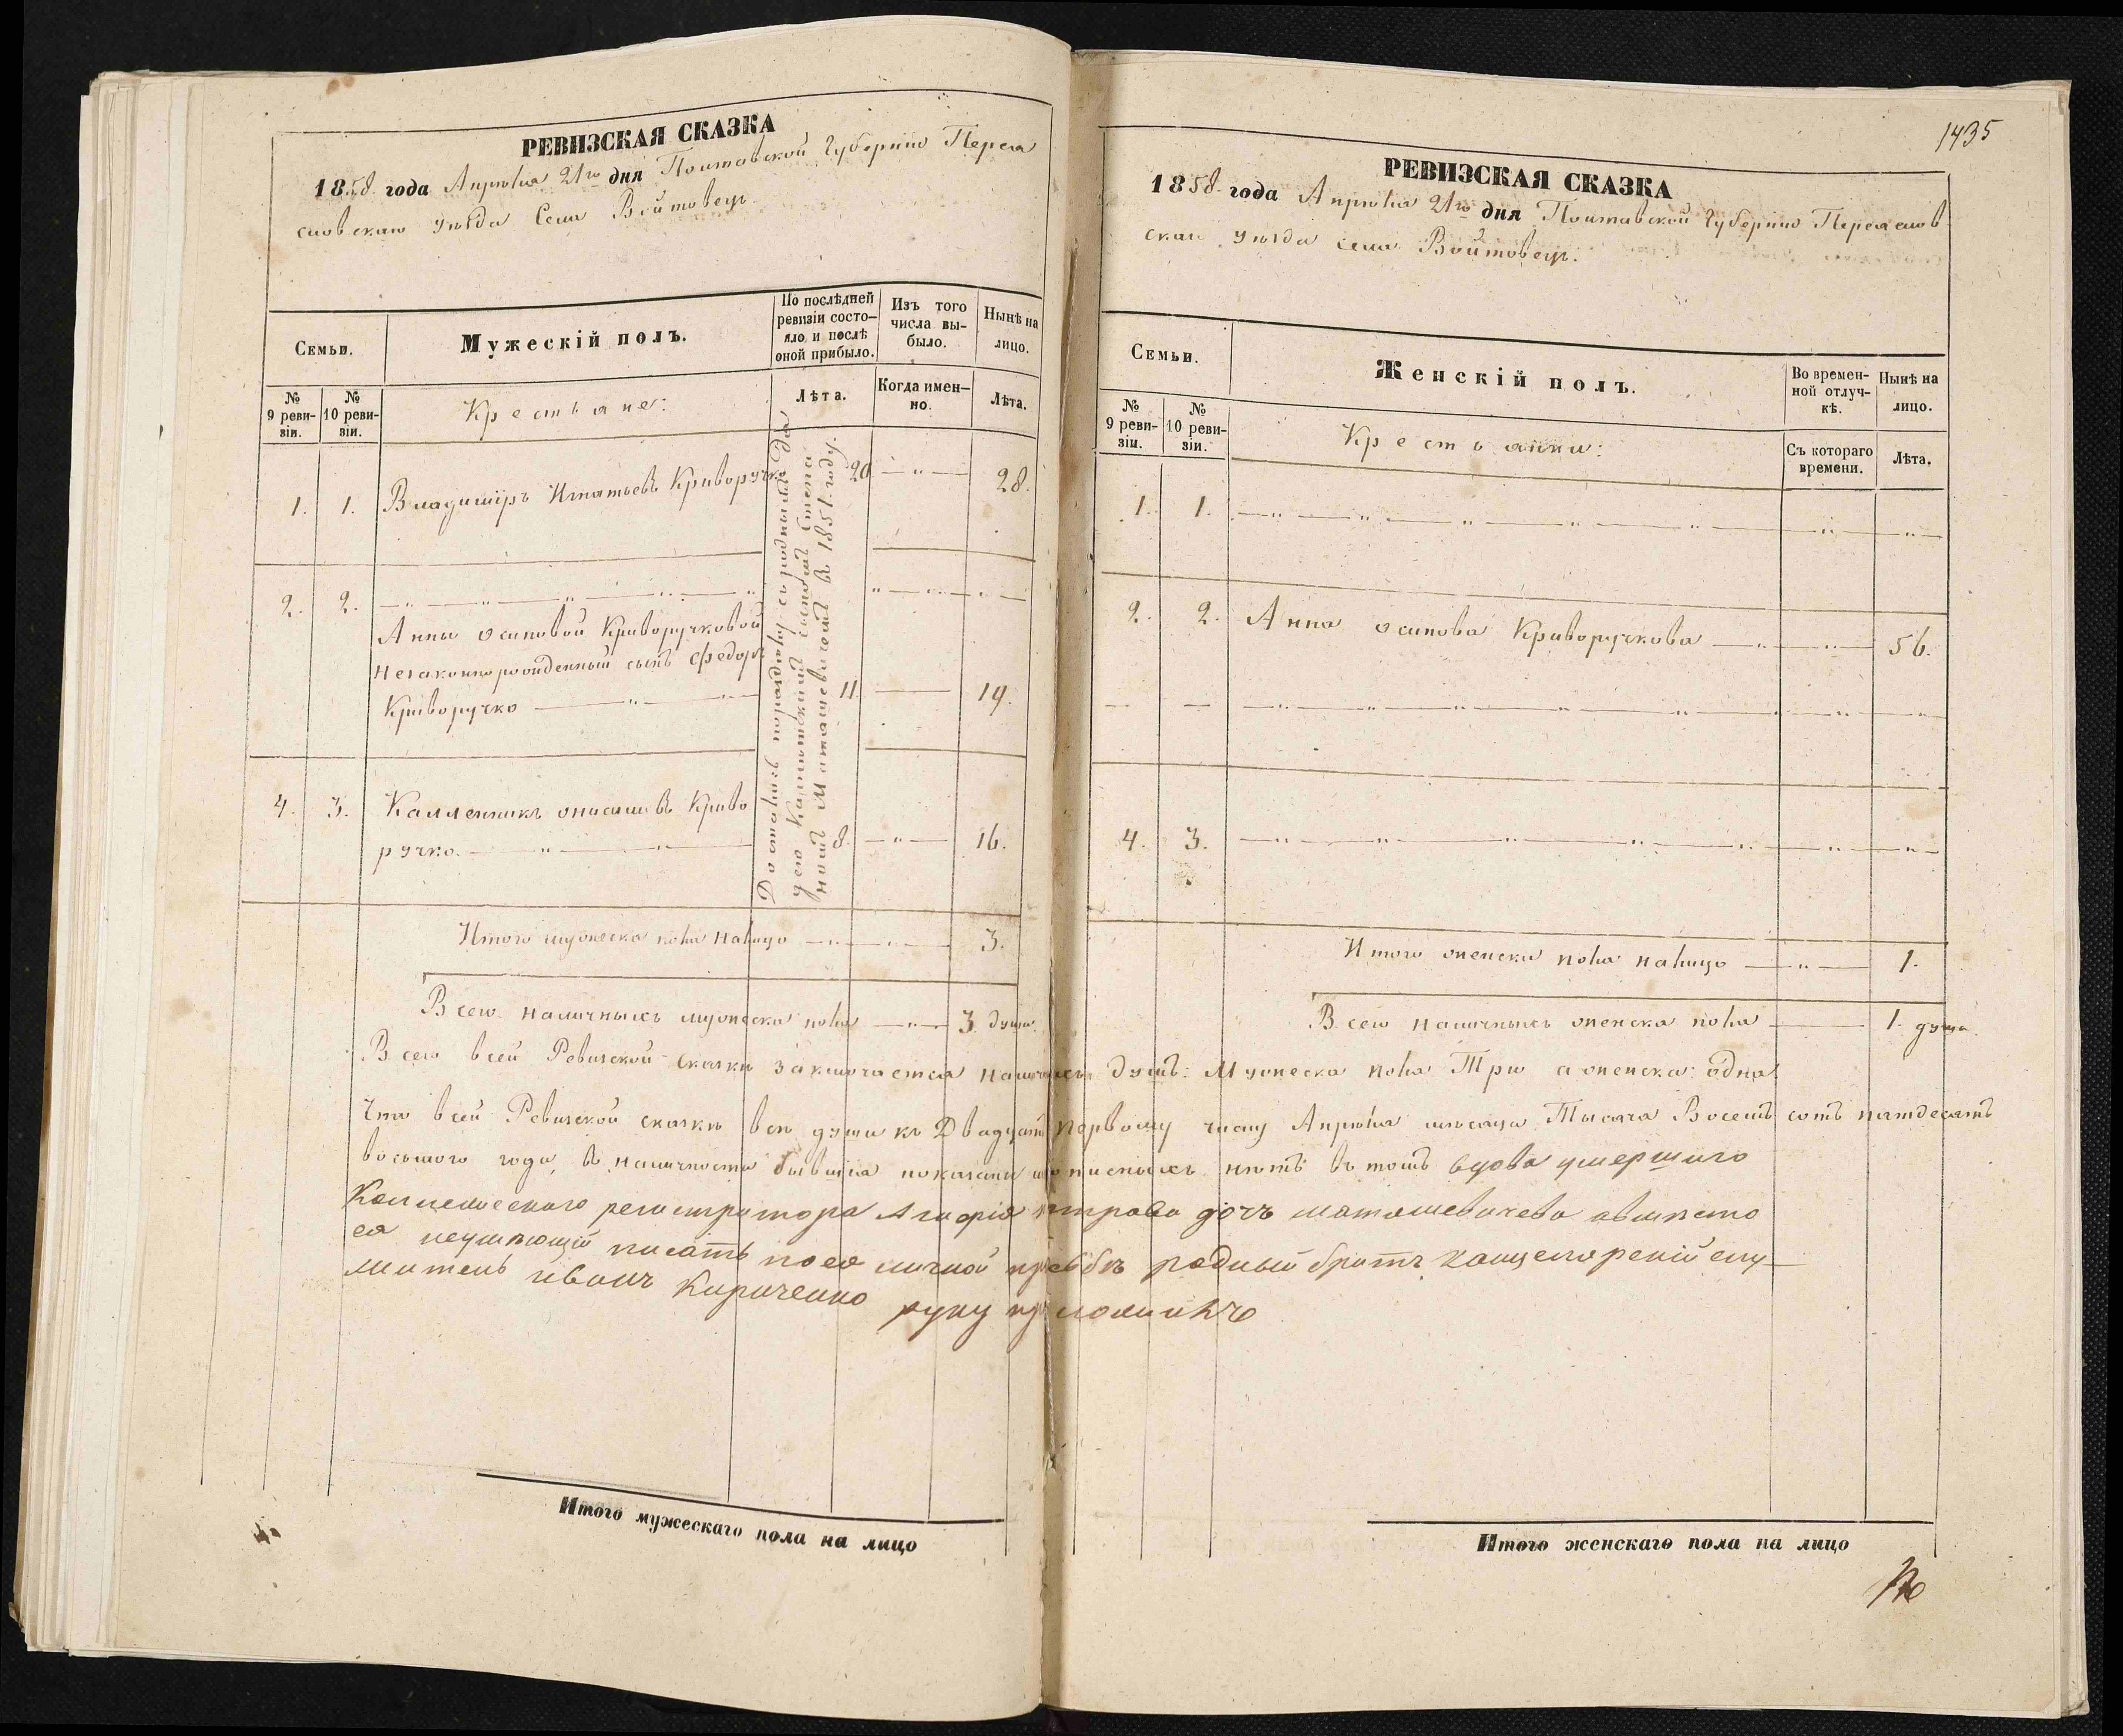 РЕВИЗСКАЯ СКАЗКА
1858 года Апрѣля 21го дня Полтавской Губерніи Перея
словскаго уѣзда Села Войтовецъ.
Семьи.
Мужескій полъ.
По послѣдней ревизіи состо-
яло и послѣ оной прибыло.
Изъ того числа вы-
было.
Нынѣ на лицо.
№ 9 реви-
зіи.
№ 10 реви-
зіи.
Крестьяне:
Лѣта.
Когда имен-
но.
Лѣта.
1. 1. Владимiръ Игнатьевъ Криворучко 20 — " — 28.
2. 2. — " — " — " — " — "
Анны Осиповой Криворучковой
незаконнорожденный сынъ Федоръ
Криворучко — " — " — 11. — 19.
4. 3. Калленикъ Криво
ручко. — " — " — 8. — " — 16.
Достались по раздѣлу съ родными
въ 1851. году.
Итого мужеска пола налицо — " — " — 3.
Всего наличныхъ мужеска пола — " — 3. души.
1435
РЕВИЗСКАЯ СКАЗКА
1858 года Апрѣля 21го дня Полтавской Губерніи Переяслов
скаго уѣзда села Войтовецъ.
Семьи.
Женскій полъ.
Во времен-
ной отлуч-
кѣ.
Нынѣ на лицо.
№ 9 реви-
зіи.
№ 10 реви-
зіи.
Крестьянки:
Съ котораго времени.
Лѣта.
1. 1. — " — " — " — " — " — " — " —
2. 2. Анна Осипова Криворучкова — " — " — 56.
— — — " — " — " — " — " — " —
4. 3. — " — " — " — " — " — " —
Итого женска пола налицо — " — 1.
Всего наличныхъ женска пола — 1. душа.
Всего всей Ревизской сказки заключается наличныхъ душъ: Мужеска пола Три а женска: одна
Что всей Ревизской сказкѣ всѣ души къ Двадцать первому числу Апрѣля мѣсяца Тысяча Восемъ сотъ пятдесятъ
восьмого года, въ наличности бывшiя показаны и прописныхъ нѣтъ въ томъ вдова умершаго
Коллежескаго регистратора дочъ Маташевичева а вмѣсто
ея неумѣющей писать по ея личной прозбѣ родный братъ канцелярскій слу
житель Иванъ Кириченко руку приложилъ
Итого мужескаго пола на лицо
Итого женскаго пола на лицо